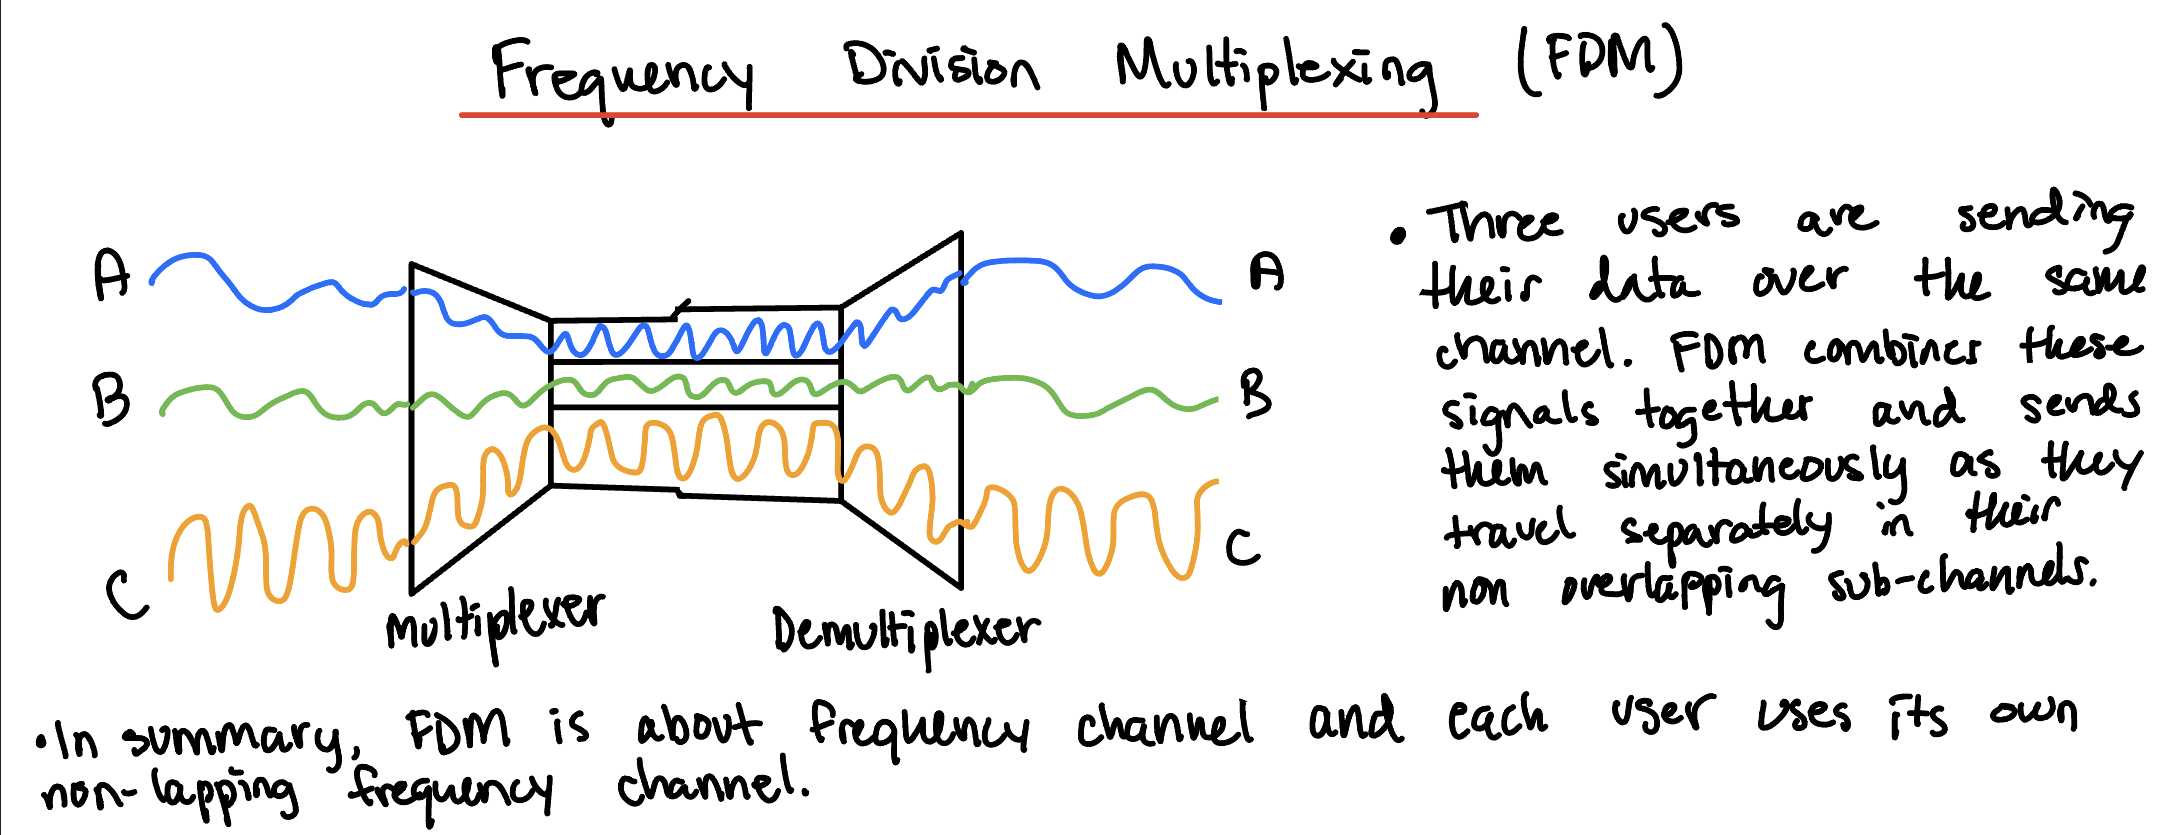 Frequency Division Multiplexing (FDM)
A
B
C
Multiplexer
Demultiplexer
A
B
C
• Three users are sending
their data over the same
channel. FDM combines these
signals together and sends
them simultaneously as they
travel separately in their
non overlapping sub-channels.
• In summary, FDM is about frequency channel and each user uses its own
non-lapping frequency channel.